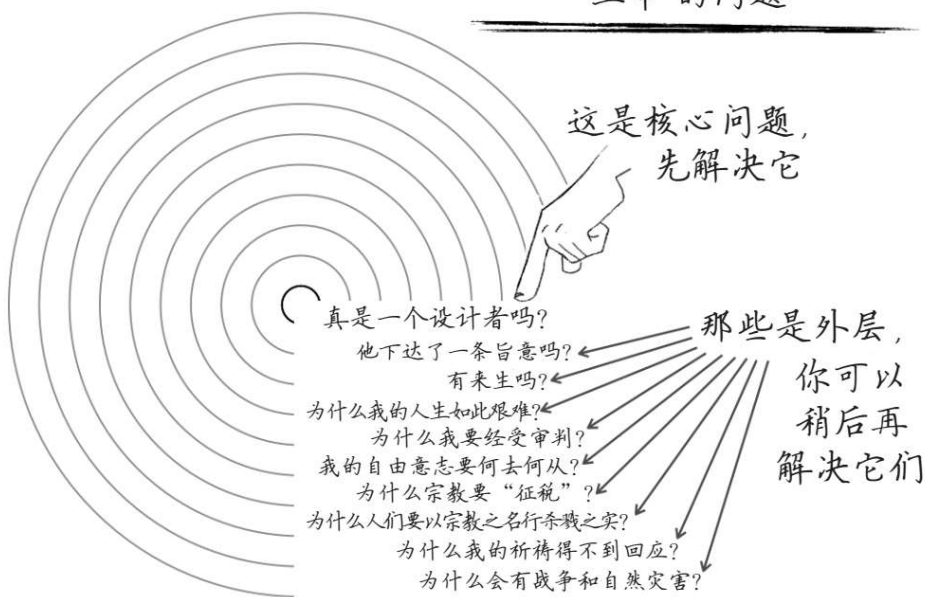 的问题
这是核心问题,
先解决它
真是一个设计者吗?
他下达了一条旨意吗?
有来生吗?
为什么我的人生如此艰难?
为什么我要经受审判?
我的自由意志要何去何从?
为什么宗教要“征税”?
为什么人们要以宗教之名行杀戮之实?
为什么我的祈祷得不到回应?
为什么会有战争和自然灾害?
那些是外层,
你可以
稍后再
解决它们